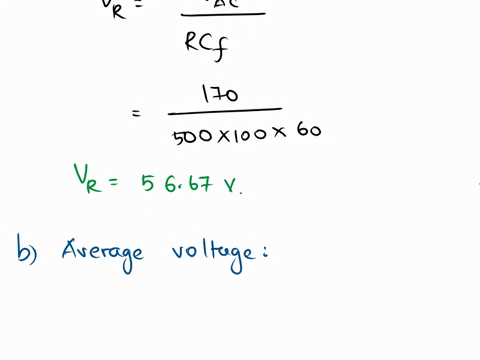 V_R =
RCf
= 170
500 × 100 × 60
V_R = 56.67 v.
b) Average voltage: